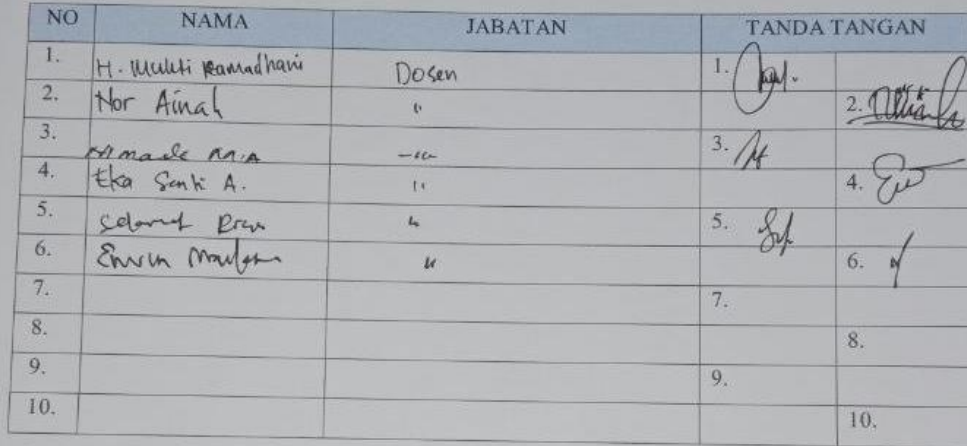 NO NAMA JABATAN TANDA TANGAN
1. H. Mukti Ramadhani Dosen 1.
2. Nor Ainah " 2.
3. M.A -"- 3.
4. Eka Santi A. " 4.
5. Selamat " 5.
6. " 6.
7. 7.
8. 8.
9. 9.
10. 10.